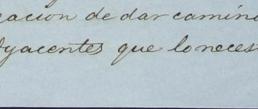 acion de dar camino
dyacentes que lo neces